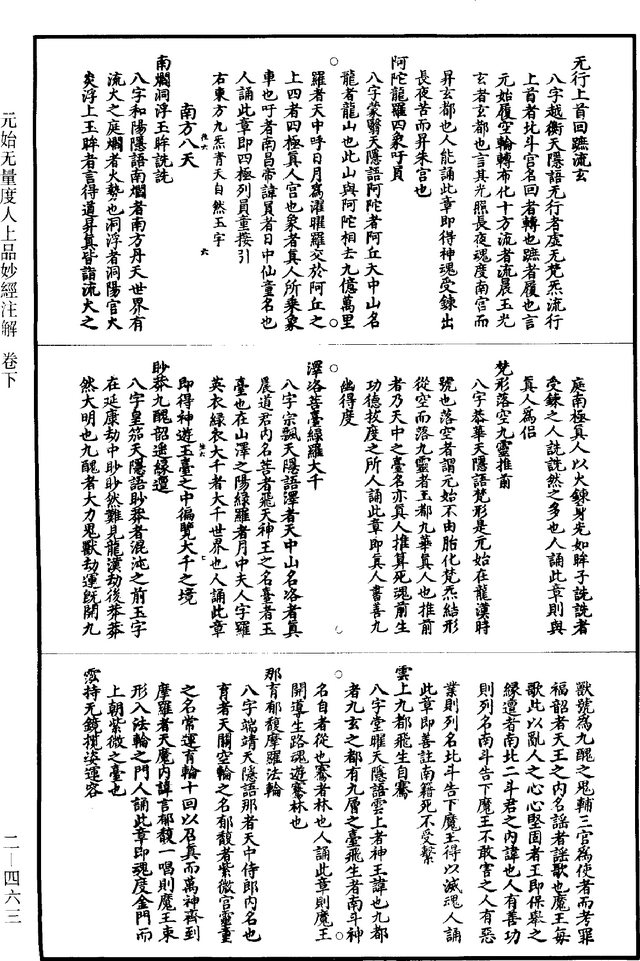 无行上首回蹠流玄
八字越衡天隱語无行者虛无梵炁流行
上首者北斗宮名回者轉也蹠者履也言
元始履空輪轉布化十方流者流晨玉光
玄者玄都也言其光照長夜魂度南宮而
昇玄都也人能誦此章即得神魂受鍊出
長夜苦而昇朱宮也
阿陀龍羅四象吁員
八字蒙翳天隱語阿陀者阿丘大中山名
龍者龍山也此山與阿陀相去九億萬里
羅者天中呼日月爲濯曜羅交於阿丘之
上四者四極真人宮也象者真人所乘象
車也吁者南昌帝諱員者日中仙童名也
人誦此章即四極列員童接引
右東方九炁青天自然玉字
南方八天
南爛洞浮玉眸詵詵
八字和陽隱語南爛者南方丹天世界有
流火之庭爛者火勢也洞浮者洞陽宮火
炎浮上玉眸者言得道昇真皆詣流火之
庭南極真人以火鍊身光如眸子詵詵者
受鍊之人詵詵然之多也人誦此章則與
真人爲侶
梵形落空九靈推前
八字恭華天隱語梵形是元始在龍漢時
號也落空者謂元始不由胎化梵炁結形
從空而落九靈者玉都九華真人也推前
者乃天中之臺名亦真人推算死魂前生
功德拔度之所人誦此章即真人書善九
幽得度
澤洛菩臺緑羅大千
八字宗飄天隱語澤者天中山名洛者真
晨道君内名菩者飛天神王之名臺者玉
臺也在山澤之陽緑羅者月中夫人字羅
英衣緑衣大千者大千世界也人誦此章
即得神遊玉臺之中徧覽大千之境
眇莽九醜韶遙緣邅
八字皇笳天隱語眇莽者混沌之前玉字
在延康劫中眇眇然難見龍漢劫後莽莽
然大明也九醜者大力鬼獸劫運既開九
獸號爲九醜之鬼輔三官爲使者而考罪
福韶者天王之内名謡者謡歌也魔王每
歌此以亂人之心心堅固者王即保舉之
緣邅者南北二斗君之内諱也人有善功
則列名南斗告下魔王不敢害之人有惡
業則列名北斗告下魔王得以滅魂人誦
此章即善註南籍死不受繫
雲上九都飛生自騫
八字堂曜天隱語雲上者神王諱也九都
者九玄之都有九層之臺飛生者南斗神
名自者從也騫者林也人誦此章則魔王
開導生路魂遊騫林也
那育郁馥摩羅法輪
八字端靖天隱語那者天中侍郎内名也
育者天關空輪之名郁馥者紫微宮靈童
之名常運育輪十回以召真而萬神齊到
摩羅者天魔内諱言郁馥一唱則魔王束
形入法輪之門人誦此章即魂度金門而
上朝紫微之臺也
霐持无鏡攬姿運容
元始无量度人上品妙經注解 卷下
二—四六三